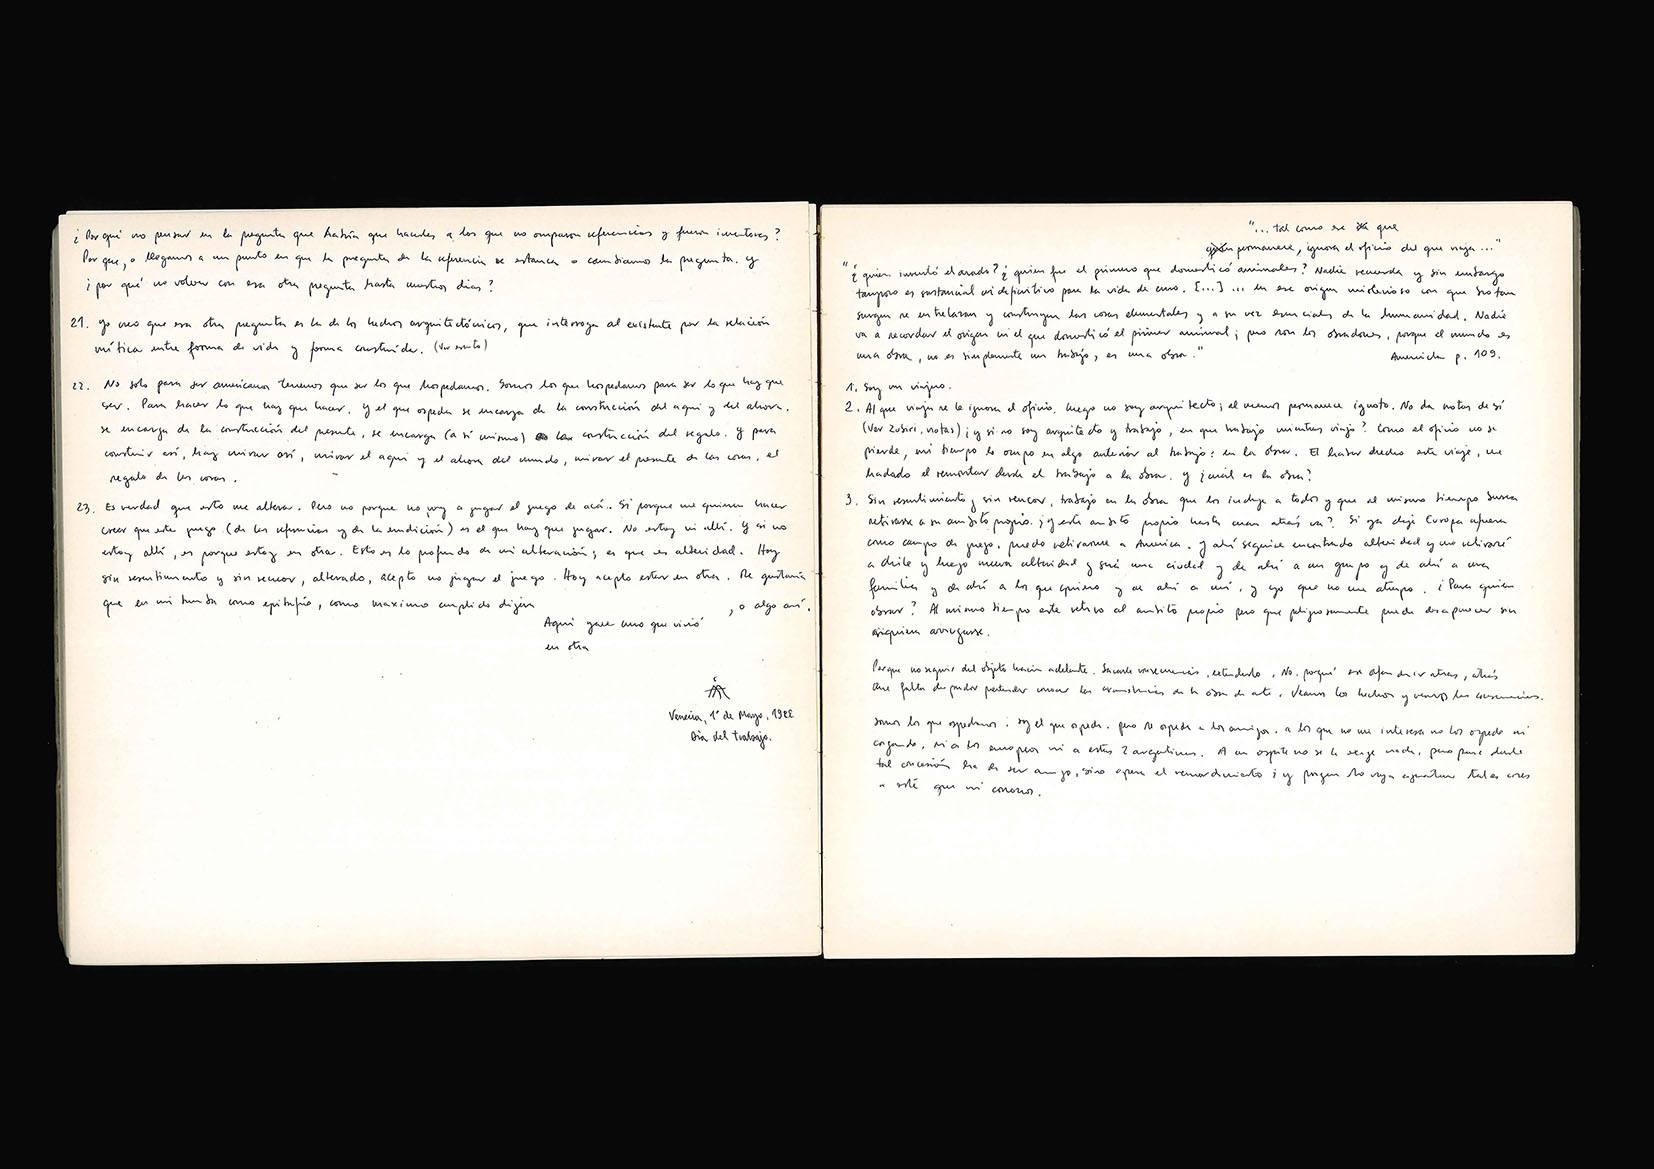 ¿Porqué no pensar en la pregunta que habría que hacerles a los que no ocuparon referencias y fueron inventores?
Por que, o llegamos a un punto en que la pregunta de la referencia se estanca o cambiamos la pregunta. y
¿por qué no volver con esa otra pregunta hasta nuestros dias?
21. Yo creo que esa otra pregunta es la de los hechos arquitectónicos, que interroga al existente por la relación
mítica entre forma de vida y forma construida. (Ver escrito)
22. No solo para ser americanos tenemos que ser los que hospedamos. Somos los que hospedamos para ser lo que hay que
ser. Para hacer lo que hay que hacer. Y el que ospeda se encarga de la construcción del aquí y del ahora.
se encarga de la construcción del presente, se encarga (a sí mismo) la construcción del regalo. y para
construir así, hay mirar así, mirar el aquí y el ahora del mundo, mirar el presente de las cosas, el
regalo de las cosas.
23. Es verdad que esto me altera. Pero no porque no voy a jugar el juego de acá. Si porque me quieren hacer
creer que este juego (de las referencias y de la erudición) es el que hay que jugar. No estoy ni allí. Y si no
estoy allí, es porque estoy en otra. Esto es lo profundo de mi alteración; es que es alteridad. Hoy
sin resentimiento y sin rencor, alterado, acepto no jugar el juego. Hoy acepto estar en otra. Me gustaría
que en mi tumba como epitafio, como maximo cumplido dijera , o algo así.
Aquí yace uno que vivió
en otra
Venecia, 1° de Mayo, 1988
Día del trabajo.
"... tal como ese que
permanece, ignora el oficio del que viaja ..."
"¿quien inventó el arado? ¿quien fue el primero que domesticó animales? Nadie recuerda y sin embargo
tampoco es sustancial ni definitivo para la vida de uno. [...] ... en ese origen misterioso con que brotan
surgen se entrelazan y construyen las cosas elementales y a su vez esenciales de la humanidad. Nadie
va a recordar el origen ni el que domesticó el primer animal; pero son los obradores, porque el mundo es
una obra, no es simplemente un trabajo, es una obra." Amereida p. 109.
1. Soy un viajero.
2. Al que viaja se le ignora el oficio, luego no soy arquitecto; al menos permanece ignoto. No da notas de sí
(Ver Zubiri, notas) ¿y si no soy arquitecto y trabajo, en que trabajo mientras viajo? Como el oficio no se
pierde, mi tiempo lo ocupo en algo anterior al trabajo: en la obra. El haber hecho este viaje, me
ha dado el remontar desde el trabajo a la obra. y ¿cuál es la obra?
3. Sin resentimiento y sin rencor, trabajo en la obra que los incluye a todos y que al mismo tiempo busca
retirarse a su ambito propio. ¿y este ambito propio hasta cuan atrás va? Si ya dejé Europa afuera
como campo de juego, puedo retirarme a America. y ahí seguiré encontrado alteridad y me retiraré
a chile y luego nueva alteridad y será una ciudad y de ahí a un grupo y de ahí a una
familia y de ahí a los que quiero y de ahí a mí, y yo que no me atrapo. ¿Para quien
obrar? Al mismo tiempo este retiro al ambito propio pero que peligrosamente puede desaparecer sin
siquiera arrugarse.
Porque no seguir del objeto hacia adelante. Sacarle consecuencias, extenderlo. No. porqué ese afan de ir atras, atrás
que falta de pudor pretender crear las circunstancias de la obra de arte. Veamos los hechos y veamos las consecuencias.
Somos los que ospedamos: soy el que ospeda. pero se ospeda a los amigos. a los que no me interesa no los ospedo ni
cagando, ni a los europeos ni a estos 2 argentinos. A un ospite no se le exige nada, pero para darle
tal concesión ha de ser amigo, sino opera el remordimiento ¿y porque
que ni conozco.